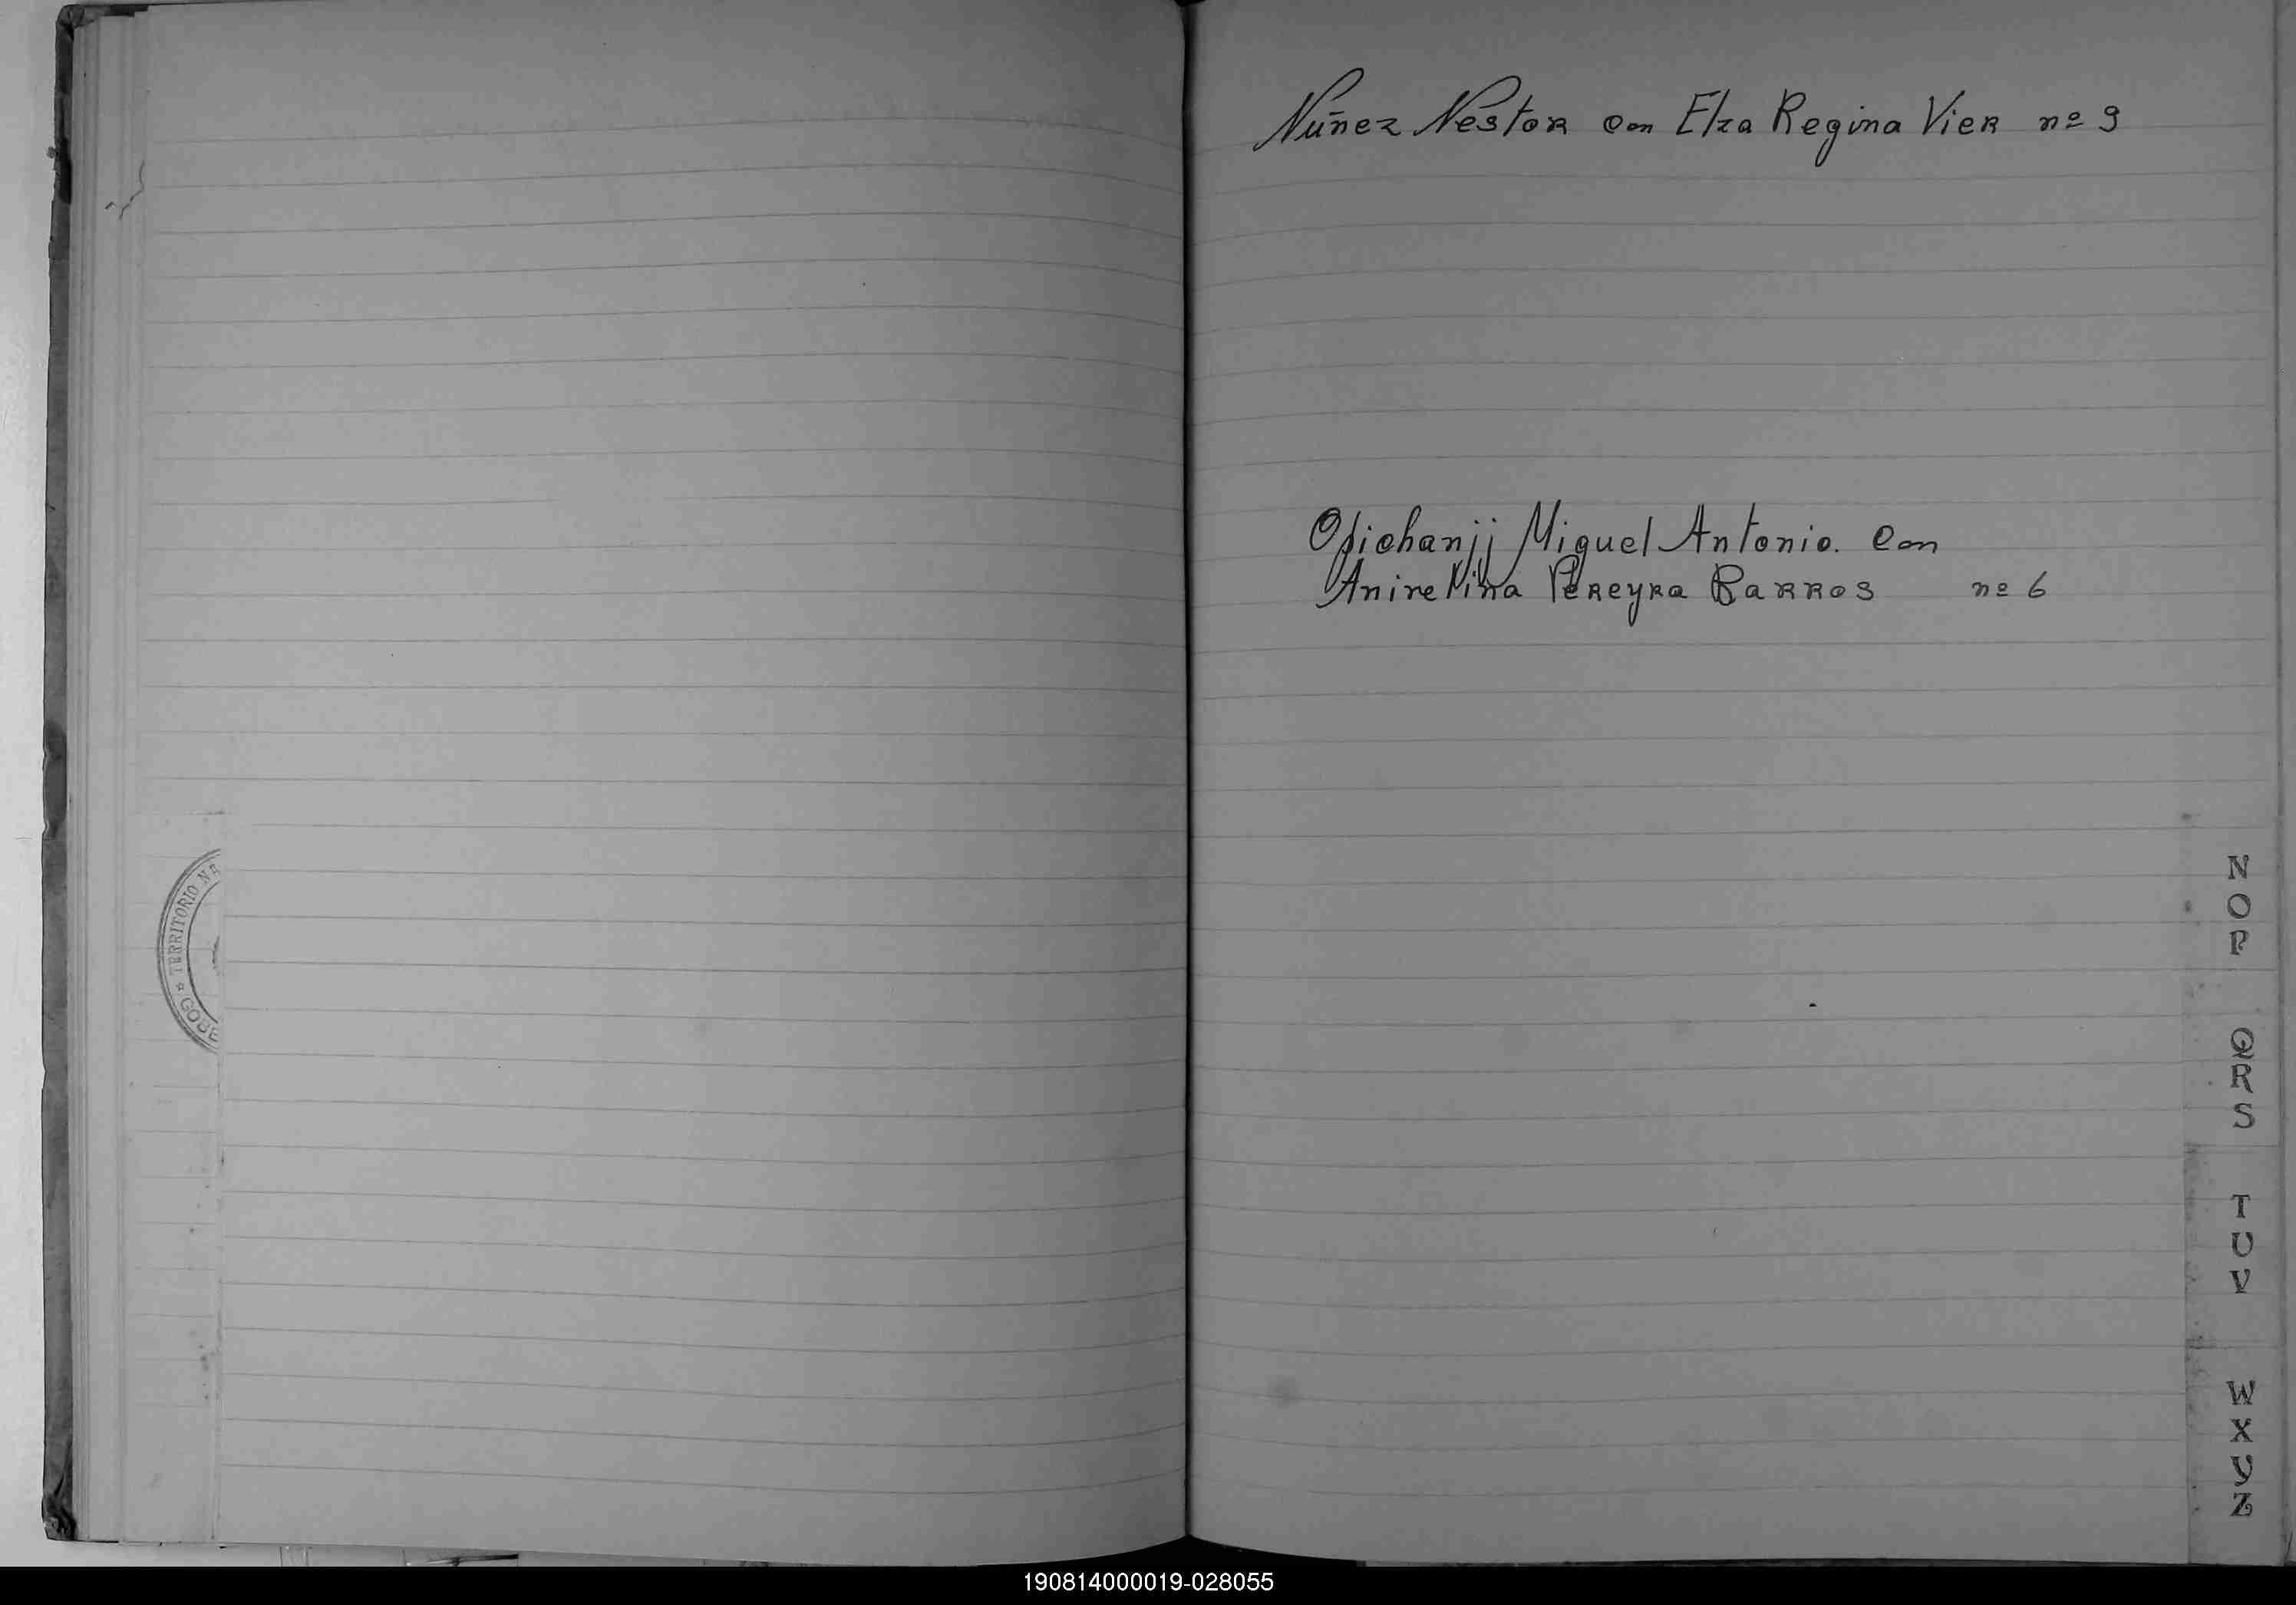 Núñez Néstor con Elza Regina Vier nº 9
Opichanjj Miguel Antonio. Con
Pereyra Barros nº 6
TERRITORIO NA
GOBE
N
O
P
Q
R
S
T
U
V
W
X
Y
Z
190814000019-028055